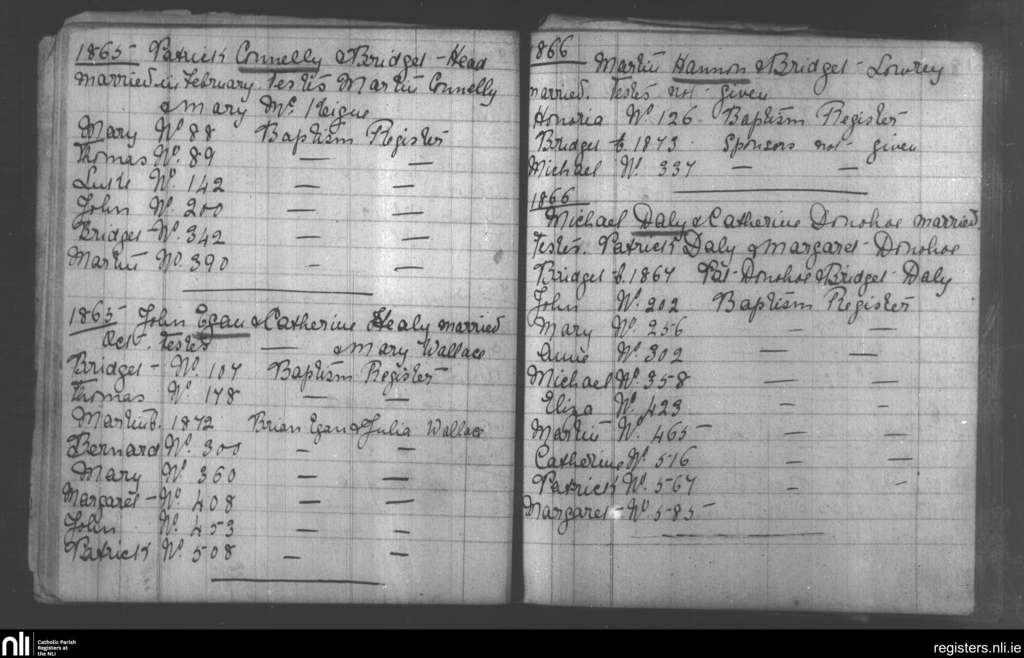 1865 Patrick Connelly & Bridget Head
married in February. Testes Martin Connelly
& Mary Mc Keigue
Mary No. 88 Baptism Register
Thomas No. 89 — —
Luke No. 142 — —
John No. 200 — —
Bridget No. 342 — —
Martin No. 390 — —
1865 John Egan & Catherine Healy married
Oct. Testes — & Mary Wallace
Bridget - No. 107 Baptism Register
Thomas No. 178 — —
Martin b. 1872 Brian Egan & Julia Wallace
Bernard No. 300 — —
Mary No. 360 — —
Margaret - No. 408 — —
John No. 453 — —
Patrick No. 508 — —
1866 Martin Hannon & Bridget Lowrey
married. Testes not given
Honoria No. 126. Baptism Register
Bridget b. 1873. Sponsors not given
Michael No. 337 — —
1866
Michael Daly & Catherine Donohoe married.
Testes. Patrick Daly & Margaret Donohoe
Bridget b. 1867 Pat Donohoe & Bridget Daly
John No. 202 Baptism Register
Mary No. 256 — —
Annie No. 302 — —
Michael No. 358 — —
Eliza No. 423 — —
Martin No. 465 — —
Catherine No. 516 — —
Patrick No. 567 — —
Margaret - No. 585
nli Catholic Parish
Registers at
the NLI
registers.nli.ie